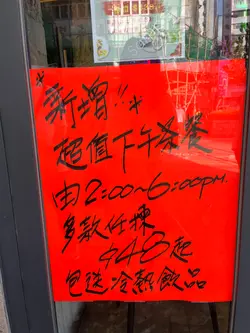 *新增!!*
超值下午茶餐
由2:00~6:00pm
多款任揀
$48起
包送冷熱飲品